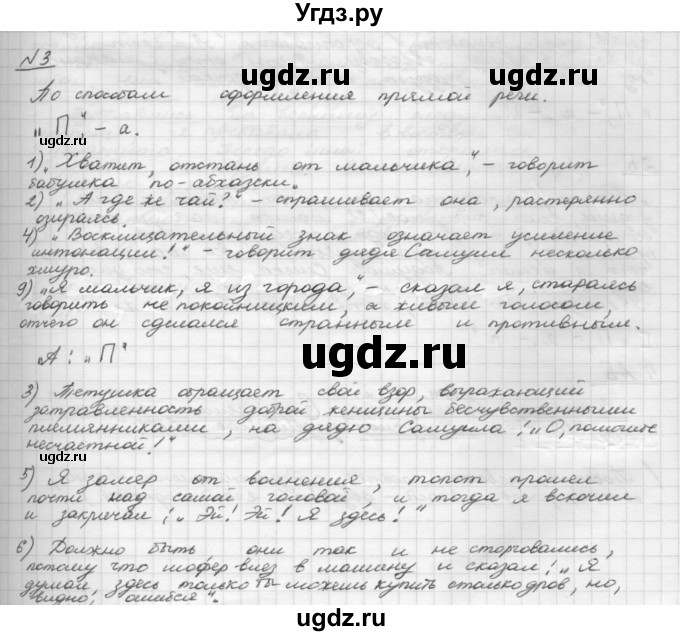 Угдз.ру
N 3
ugdz.ru ugdz.ru
По способам оформления прямой речи.
„П," – а.
1) „Хватит, отстань от мальчика," – говорит
бабушка по-абхазски.
2) „А где же чай?" – спрашивает она, растерянно
озираясь.
4) „Восклицательный знак означает усиление
интонации!" – говорит дядя Самуил несколько
хмуро.
9) „Я мальчик, я из города," – сказал я, стараясь
говорить не покойницким, а живым голосом,
отчего он сделался странным и противным.
ugdz.ru
А: „П"
3) Тетушка обращает свой взор, выражающий
затравленность доброй женщины бесчувственными
племянниками, на дядю Самуила: „О, помогите
несчастной!"
5) Я замер от волнения, топот прошел
почти над самой головой, и тогда я вскочил
и закричал: „Эй! Эй! Я здесь!"
6) Должно быть, они так и не сторговались,
потому что шофер влез в машину и сказал: „Я
думал, здесь только ты можешь купить столько дров, но,
видно, ошибся".
ugdz.ru ugdz.ru